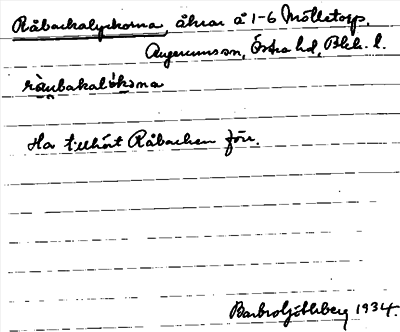 Råbackalyckorna, åkrar å 1-6 Mölletorp,
Augerums sn, Östra hd, Blek. l.
råubakalökona
Ha tillhört Råbacken förr.
Barbro Ljöthberg 1934.